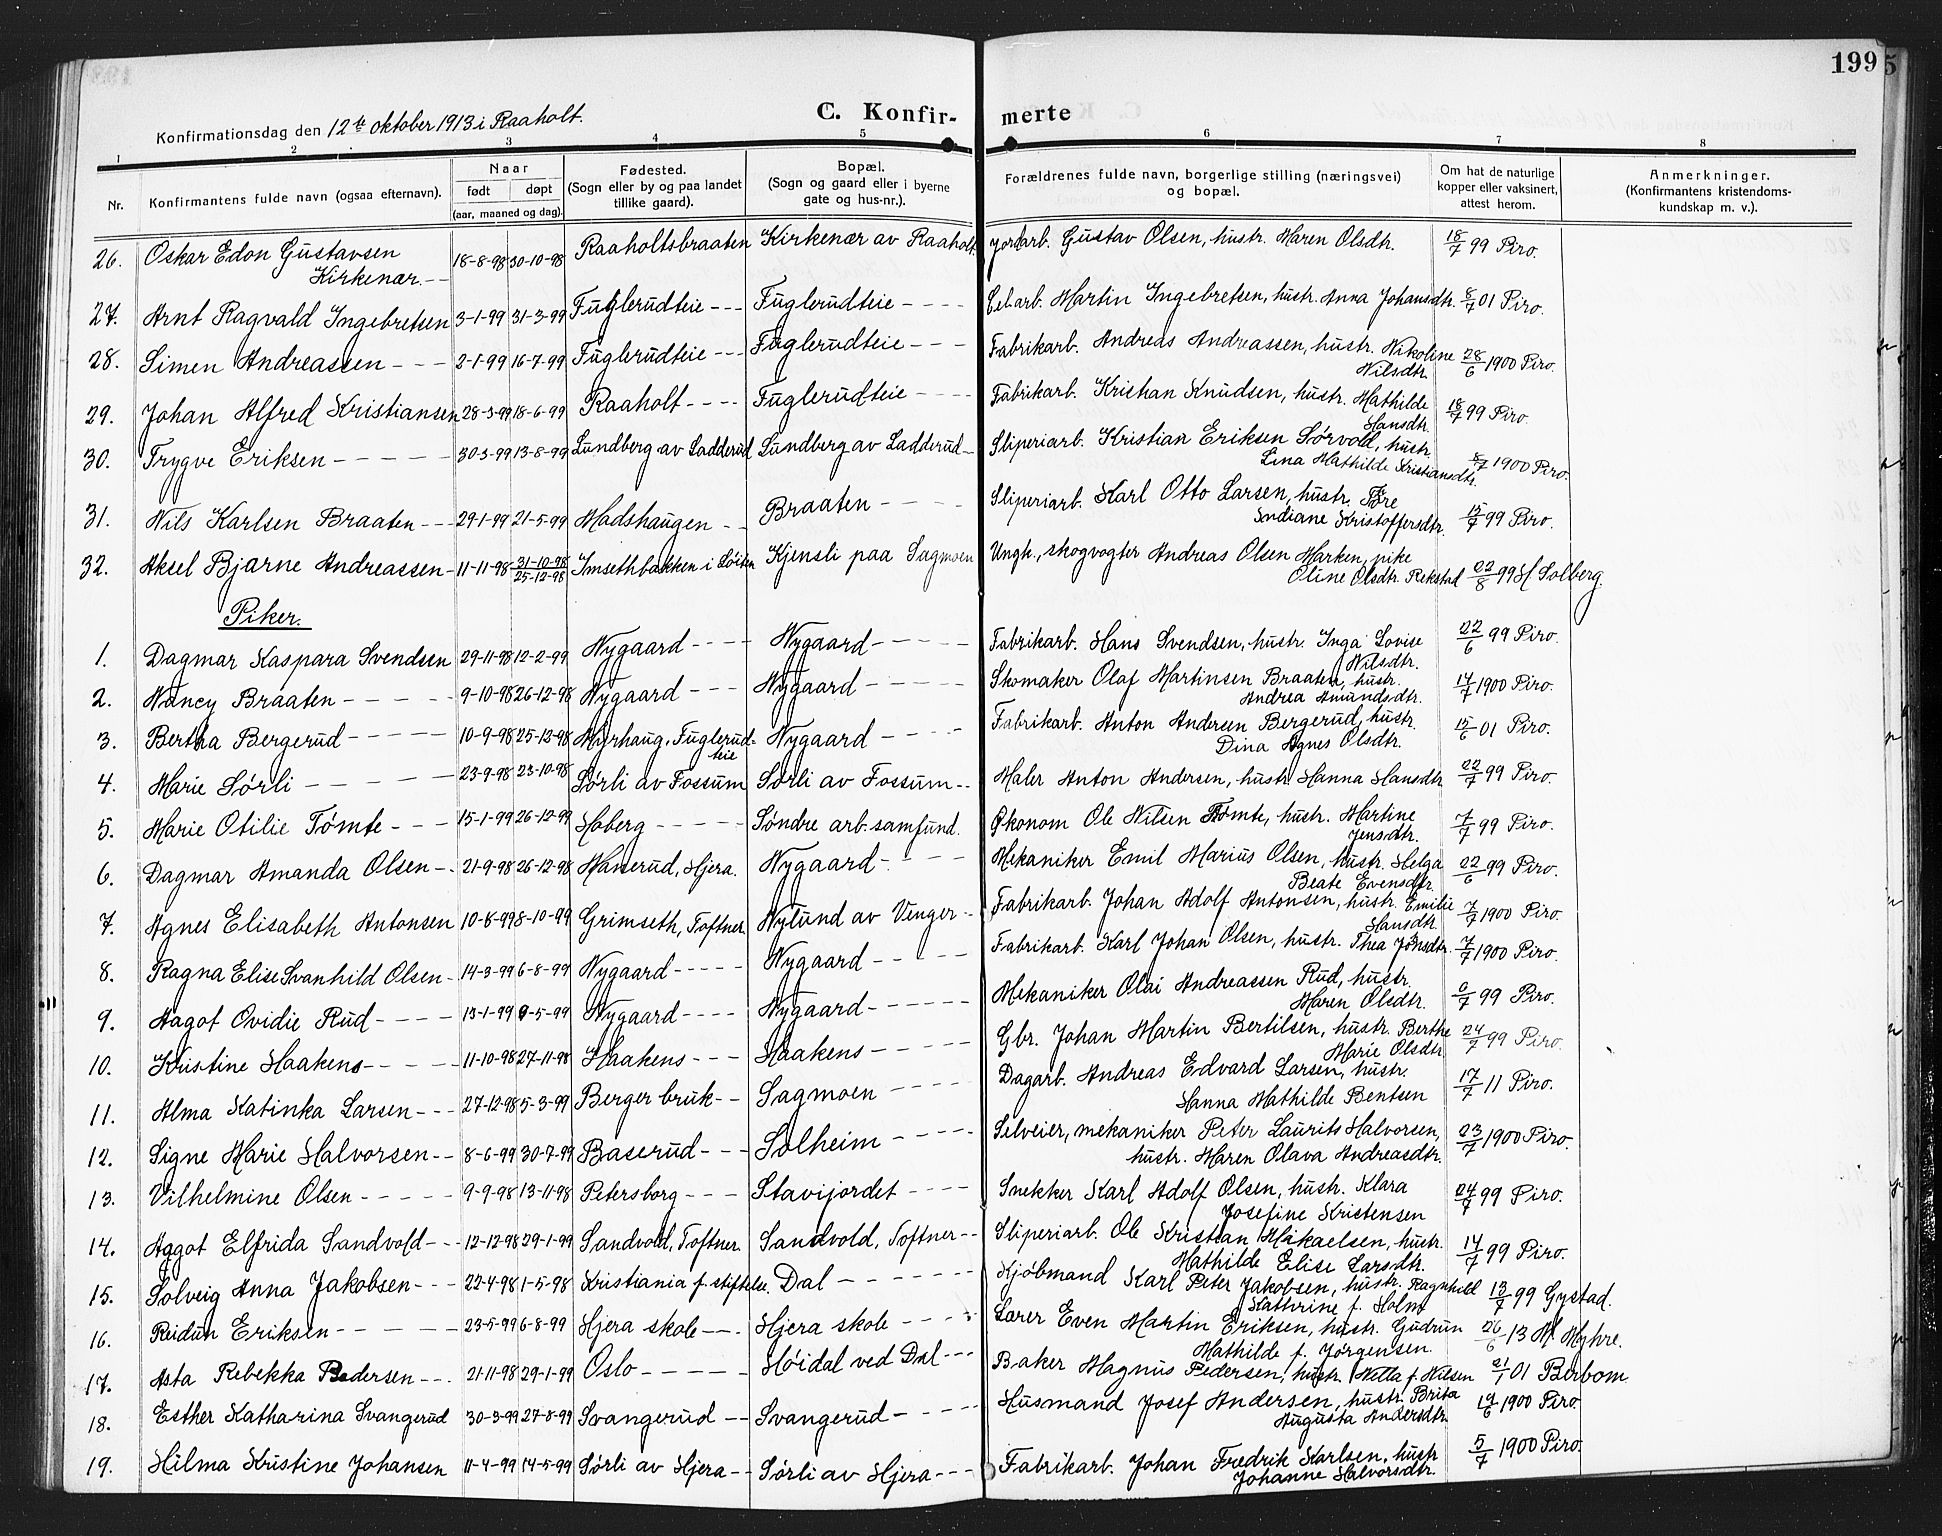 199
C. Konfir- merte
Konfirmationsdag den 12te oktober 1913 i Raaholt.
1 2 3 4 5 6 7 8
Nr. Konfirmantens fulde navn (ogsaa efternavn). Naar født døpt (aar, maaned og dag). Fødested. (Sogn eller by og paa landet tillike gaard). Bopæl. (Sogn og gaard eller i byerne gate og hus-nr.). Forældrenes fulde navn, borgerlige stilling (næringsvei) og bopæl. Om hat de naturlige kopper eller vaksinert, attest herom. Anmerkninger. (Konfirmantens kristendoms- kundskap m. v.).
26. Oskar Edon Gustavsen 18-8-98 30-10-98 Raaholtsbraaten Kirkenær av Raaholt. Jordarb. Gustav Olsen, hustr. Maren Olsdtr. 18/7 99 Piro.
Kirkenær. --
27. Arnt Ragvald Ingebretsen 3-1-99 31-3-99 Fuglerudteie --- Fuglerudteie ---- Martin Ingebretsen, hustr. Anna Johansdtr. 8/7 01 Piro.
28. Simen Andreassen --- 2-1-99 16-7-99 Fuglerudteie --- Fuglerudteie --- Fabrikarb. Andreas Andreassen, hustr. Nikoline 28/6 1900 Piro.
Nilsdtr.
29. Johan Alfred Kristiansen 28-3-99 18-6-99 Raaholt ---- Fuglerudteie ---- Fabrikarb. Kristian Knudsen, hustr. Mathilde 18/7 99 Piro.
Hansdtr.
30. Trygve Eriksen ----- 30-3-99 13-8-99 Lundberg av Ladderud Lundberg av Ladderud - Sliperiarb. Kristian Eriksen Sørvold, hustr.
Lina Mathilde Kristiansdtr. 8/7 1900 Piro.
31. Nils Karlsen Braaten -- 29-1-99 21-5-99 Madshaugen -- Braaten ---- Sliperiarb. Karl Otto Larsen, hustr.
Indiane Kristoffersdtr. 15/7 99 Piro.
32. Aksel Bjarne Andreassen - 11-11-98 31-10-98 25-12-98 Imsethbakken i Kjensli paa Sagmoen Ungk., skogvogter Andreas Olsen Marken, pike
Oline Olsdtr. Rekstad 22/8 99 H Solberg.
Piker.
1. Dagmar Kaspara Svendsen 29-11-98 12-2-99 Nygaard ---- Nygaard ----- Fabrikarb. Hans Svendsen, hustr. Inga Lovise 22/6 99 Piro.
Nilsdtr.
2. Nancy Braaten ----- 9-10-98 26-12-98 Nygaard --- Nygaard ----- Skomaker Olaf Martinsen Braaten, hustr. 14/7 1900 Piro.
Andrea Amundsdtr.
3. Bertha Bergerud ----- 10-9-98 25-12-98 Myrhaug, Fuglerud- Nygaard ---- Fabrikarb. Anton Andersen Bergerud, hustr. 15/6 01 Piro.
teie Dina Agnes Olsdtr.
4. Marie Sørli ----- 23-9-98 23-10-98 Sørli av Fossum Sørli av Fossum -- Maler Anton Andersen, hustr. Hanna Hansdtr. 22/7 99 Piro.
5. Marie Otilie Tømte --- 15-1-99 26-12-99 Hoberg ----- Søndre arb. samfund. Økonom Ole Nilsen Tømte, hustr. Martine 7/7 99 Piro.
Jensdtr.
6. Dagmar Amanda Olsen -- 21-9-98 26-12-98 Hanerud, Hjera. Nygaard ---- Mekaniker Emil Marius Olsen, hustr. Helga 22/6 99 Piro.
Beate Evensdtr.
7. Agnes Elisabeth Antonsen 10-8-99 8-10-99 Grimseth, Toftner. Nylund av Venger -- Fabrikarb. Johan Adolf Antonsen, hustr. Emilie 7/7 1900 Piro.
Hansdtr.
8. Ragna Elise Svanhild Olsen - 14-3-99 6-8-99 Nygaard ----- Nygaard ---- Fabrikarb. Karl Johan Olsen, hustr. Thea Jonsdtr. 7/7 1900 Piro.
9. Aagot Ovidie Rud ---- 13-1-99 9-5-99 Nygaard ---- Nygaard ----- Mekaniker Olai Andreassen Rud, hustr.
Maren Olsdtr. 6/7 99 Piro.
10. Kristine Haakens ----- 11-10-98 27-11-98 Haakens --- Haakens ----- Gbr. Johan Martin Bertilsen, hustr. Berthe 24/7 99 Piro.
Marie Olsdtr.
11. Alma Katinka Larsen --- 27-12-98 5-3-99 Berger bruk -- Sagmoen ---- Dagarb. Andreas Edvard Larsen, hustr. 17/7 11 Piro.
Hanna Mathilde Bentsen
12. Signe Marie Halvorsen -- 8-6-99 30-7-99 Baserud --- Solheim ---- Selveier, mekaniker Peter Laurits Halvorsen, 23/7 1900 Piro.
hustr. Maren Olava Andreasdtr.
13. Vilhelmine Olsen ----- 9-9-98 13-11-98 Petersborg --- Stavijordet ---- Snekker Karl Adolf Olsen, hustr. Klara 24/7 99 Piro.
Josefine Kristensen
14. Aggot Elfrida Sandvold -- 12-12-98 29-1-99 Sandvold, Toftner. Sandvold, Toftner -- Sliperiarb. Ole Kristian Mikaelsen, hustr. 14/7 99 Piro.
Mathilde Elise Larsdtr.
15. Solveig Anna Jakobsen --- 22-4-98 1-5-98 Kristiania f. stiftelse. Dal ------ Kjøbmand Karl Peter Jakobsen, hustr. Ragnhild 13/7 99 Gystad.
Kathrine f. Holm
16. Reidun Eriksen ----- 23-5-99 6-8-99 Hjera skole --. Hjera skole ---- Lærer Even Martin Eriksen, hustr. Gudrun 26/6 13 M Myhre.
Mathilde f. Jørgensen.
17. Asta Rebekka Pedersen --. 21-11-98 29-1-99 Oslo ----- Høidal ved Dal --- Baker Magnus Pedersen, hustr. Netta f. Nilsen 21/1 01 Berbom
18. Esther Katharina Svangerud 30-3-99 27-8-99 Svangerud -- Svangerud ----- Husmand Josef Andersen, hustr. Brita 19/6 1900 Piro.
Augusta Andersdtr.
19. Hilma Kristine Johansen 11-4-99 14-5-99 Sørli av Hjera -- Sørli av Hjera --- Fabrikarb. Johan Fredrik Karlsen, hustr. 5/7 1900 Piro.
Johanne Halvorsdtr.